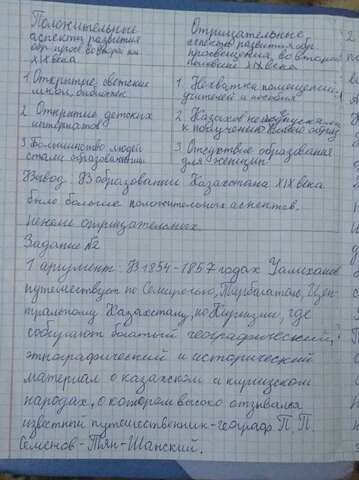 Положительные
аспекты развития
обр. просв во второй пол
XIX века
1. Открытие светских
школ, библиотек
2. Открытие детских
интернатов
3. Большинство людей
стали образованными
Отрицательные
аспекты развития обр.
просвещения, во второй
половине XIX века
1. Нехватка помещений,
учителей и пособий
2. Казахов не допускали
к получению
3. Отсутствие образования
для женщин
Вывод. В образовании Казахстана XIX века
было больше положительных аспектов,
нежели отрицательных.
Задание №2
1 аргумент. В 1854-1857 годах Уалиханов
путешествует по Семиречью, Тарбагатаю, Цен-
тральному Казахстану, по Киргизии, где
собирают богатый географический,
этнографический и исторический
материал о казахском и киргизском
народах, о котором высоко отзывался
известный путешественник-географ П. П.
Семенов-Тян-Шанский.